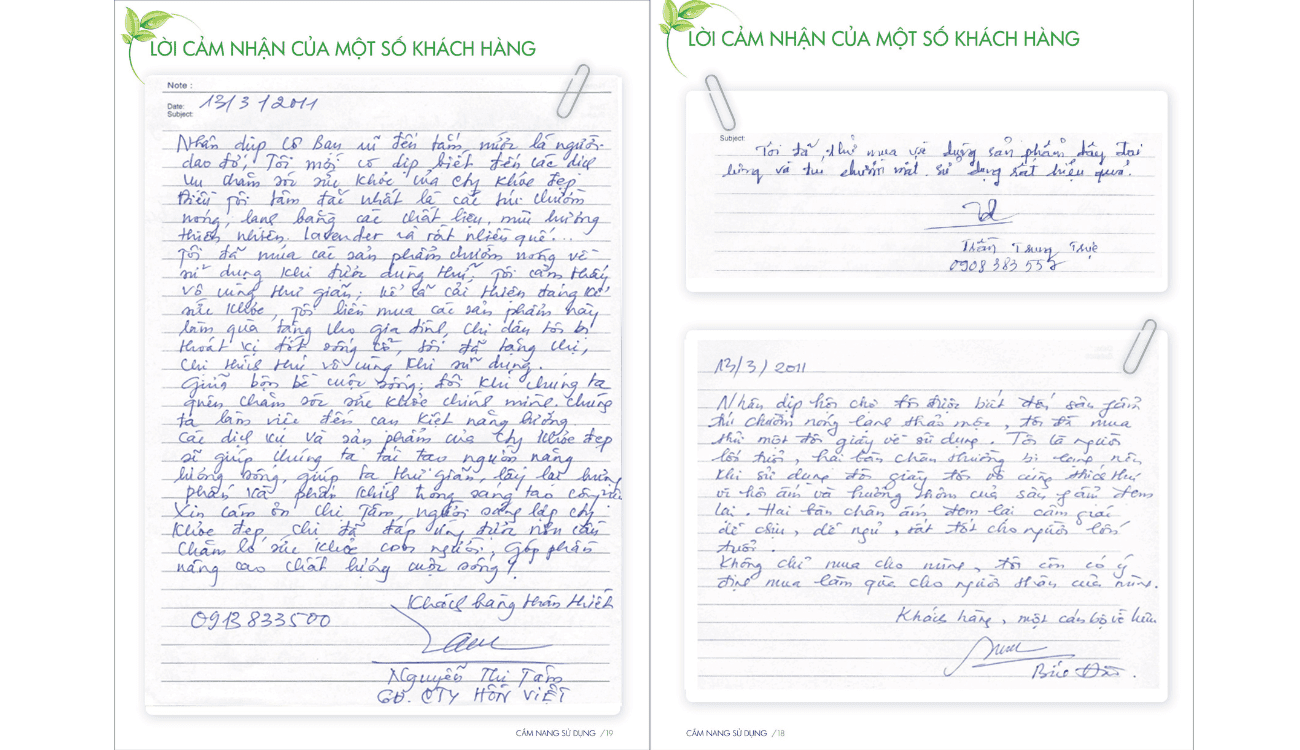 LỜI CẢM NHẬN CỦA MỘT SỐ KHÁCH HÀNG
Note :
Date: 13/3/2011
Subject:
Nhân dịp cô bạn rủ đến tắm, mức lá người
dao đỏ, Tôi mới có dịp biết đến các dịch
vụ chăm sóc sức khỏe của Cty Khỏe Đẹp
Điều tôi tâm đắc nhất là các túi chườm
nóng, lạnh bằng các chất liệu, mùi hương
thiên nhiên. lavender và rất nhiều quế...
Tôi đã mua các sản phẩm chườm nóng về
sử dụng khi được dùng thử, Tôi cảm thấy
vô cùng thư giãn, kể cả cải thiện đáng kể
sức khỏe, Tôi liền mua các sản phẩm này
làm quà tặng cho gia đình, chị dâu tôi bị
thoát vị đốt sống cổ, tôi đã tặng chị,
chị thích thú vô cùng khi sử dụng.
Giữa bộn bề cuộc sống, đôi khi chúng ta
quên chăm sóc sức khỏe chính mình. chúng
ta làm việc đến cạn kiệt năng lượng.
Các dịch vụ và sản phẩm của Cty Khỏe đẹp
sẽ giúp chúng ta tái tạo nguồn năng
lượng sống, giúp ta thư giãn, lấy lại hưng
phấn và phấn khích trong sáng tạo công việc
Xin cám ơn chị Tâm, người sáng lập cty
Khỏe đẹp, chị đã đáp ứng được nhu cầu
chăm lo sức khỏe con người, góp phần
nâng cao chất lượng cuộc sống!
Khách hàng thân thiết
0913833500
Nguyễn Thị Tâm
GĐ. CTY HỒN VIỆT
CẨM NANG SỬ DỤNG /19
LỜI CẢM NHẬN CỦA MỘT SỐ KHÁCH HÀNG
Subject:
Tôi đã thử mua về dụng sản phẩm dây đai
lưng và túi chườm mắt. sử dụng rất hiệu quả.
Trần Trung Trực
0908 383 557
13/3/2011
Nhân dịp hội chợ tôi được biết đến sản phẩm
túi chườm nóng lạnh thảo mộc, tôi đã mua
thử một đôi giày về sử dụng. Tôi là người
lớn tuổi, hai bàn chân thường bị lạnh nên
khi sử dụng đôi giày tôi vô cùng thích thú
vì hơi ấm và hương thơm của sản phẩm đem
lại. Hai bàn chân ấm đem lại cảm giác
dễ chịu, dễ ngủ, rất tốt cho người lớn
tuổi.
Không chỉ mua cho mình, tôi còn có ý
định mua làm quà cho người thân của mình.
Khách hàng, một cán bộ về hưu
CẨM NANG SỬ DỤNG /18